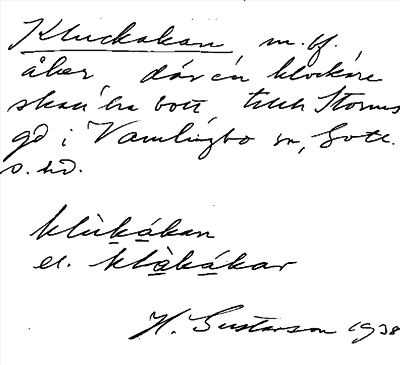 Kluckakan, m. bf.
åker där en klockare
skall ha bott till Storms
gd i Vamlingbo sn, Gotl.
s. hd.
klùkákan
el. klàkákar
H. Gustavson 1938